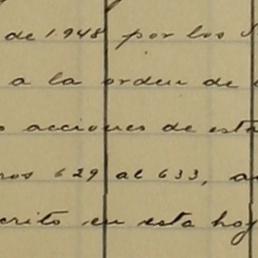 de 1948 por los S
a la orden de
acciones de esta
ros 629 al 633, a
crito en esta hoj